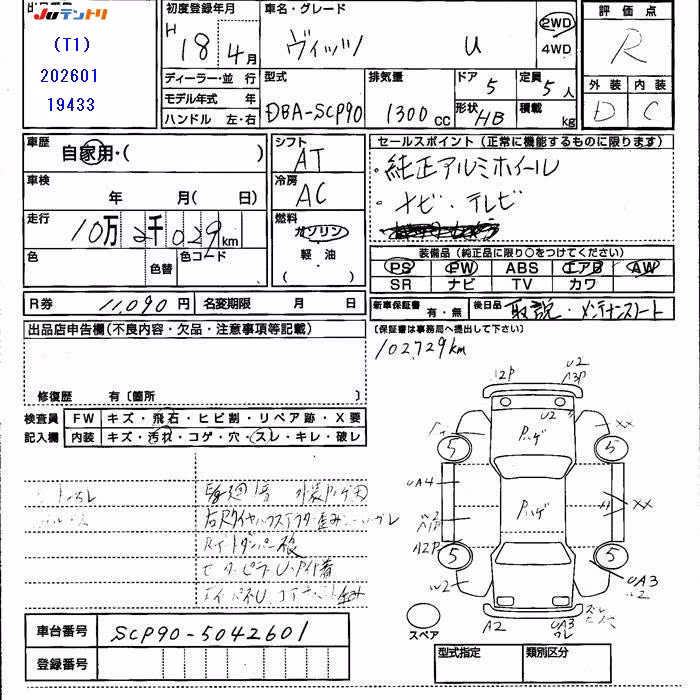 Juテントリ
(T1)
202601
19433
初度登録年月
H 18年 4月
車名・グレード
ヴィッツ U
2WD
4WD
評価点
R
外装 内装
D C
ディーラー・並行
モデル年式 年
ハンドル 左・右
型式
DBA-SCP90
排気量
1300cc
ドア 5
形状 HB
定員 5人
積載 kg
車歴
自家用・( )
車検
年 月( 日)
走行
10万2千029km
色
色替
色コード
シフト
AT
冷房
AC
燃料
ガソリン
軽油
( )
セールスポイント(正常に機能するものに限ります)
・純正アルミホイール
・ナビ・テレビ
装備品(純正品に限り○をつけてください)
PS PW ABS エアB AW
SR ナビ TV カワ
R券 11,090円
名変期限 月 日
新車保証書 有・無
後日品 取説・メンテナンスノート
(保証書は事務局へ提出して下さい)
出品店申告欄(不良内容・欠品・注意事項等記載)
102729km
修復歴 有〔箇所 〕
検査員 FW キズ・飛石・ヒビ割・リペア跡・X要
記入欄 内装 キズ・汚れ・コゲ・穴・スレ・キレ・破レ
12P
U2
A3P
U2
Pハゲ
XX
5
5
UA4
Pハゲ
XX
U2
A1P
A2P
5
5
U2
UA3
U2
スペア
A2
UA3
ワレ
車台番号 SCP90-5042601
登録番号
型式指定 類別区分